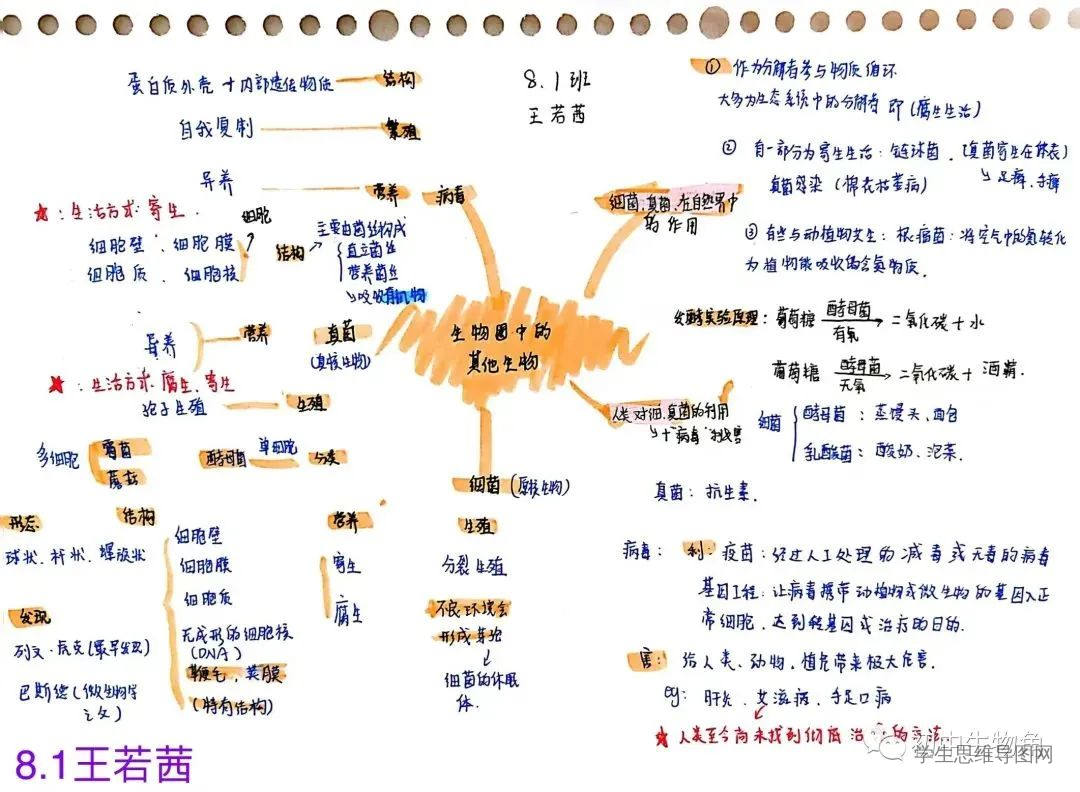 8.1班
王若茜
生物圈中的
其他生物
病毒
结构
蛋白质外壳 + 内部遗传物质
繁殖
自我复制
营养
异养
★：生活方式：寄生.
真菌
(真核生物)
结构
主要由菌丝构成
直立菌丝
营养菌丝
↘吸收有机物
细胞
细胞壁、细胞膜
细胞质、细胞核
营养
异养
★：生活方式：腐生、寄生
生殖
孢子生殖
分类
单细胞
酵母菌
多细胞
霉菌
蘑菇
细菌 (原核生物)
形态
球状、杆状、螺旋状
结构
细胞壁
细胞膜
细胞质
无成形的细胞核
(DNA)
鞭毛，荚膜
(特有结构)
营养
寄生
腐生
生殖
分裂生殖
不良环境会
形成芽孢
↓
细菌的休眠
体.
发现
列文·虎克(最早发现)
巴斯德(微生物学
之父)
细菌、真菌、在自然界中
的作用
① 作为分解者参与物质循环
大多为生态系统中的分解者 即(腐生生活)
② 有一部分为寄生生活：链球菌，(真菌寄生在体表)
↘足癣、手癣
真菌感染 (棉衣枯萎病)
③ 有些与动植物共生：根瘤菌：将空气中的氮转化
为植物能吸收的含氮物质.
发酵实验原理：葡萄糖 酵母菌 有氧 → 二氧化碳+水
葡萄糖 酵母菌 无氧 → 二氧化碳+ 酒精.
人类对细、真菌的利用
↘+"病毒"利害
细菌
酵母菌：蒸馒头、面包
乳酸菌：酸奶、泡菜.
真菌：抗生素.
病毒：利：疫苗：经过人工处理的减毒或无毒的病毒
基因工程：让病毒携带动植物或微生物的基因入正
常细胞，达到转基因或治疗的目的.
害：给人类、动物，植物带来极大危害.
eg：肝炎、艾滋病、手足口病
★ 人类至今尚未找到彻底治病的方法
初中生物角
学生思维导图网
8.1王若茜